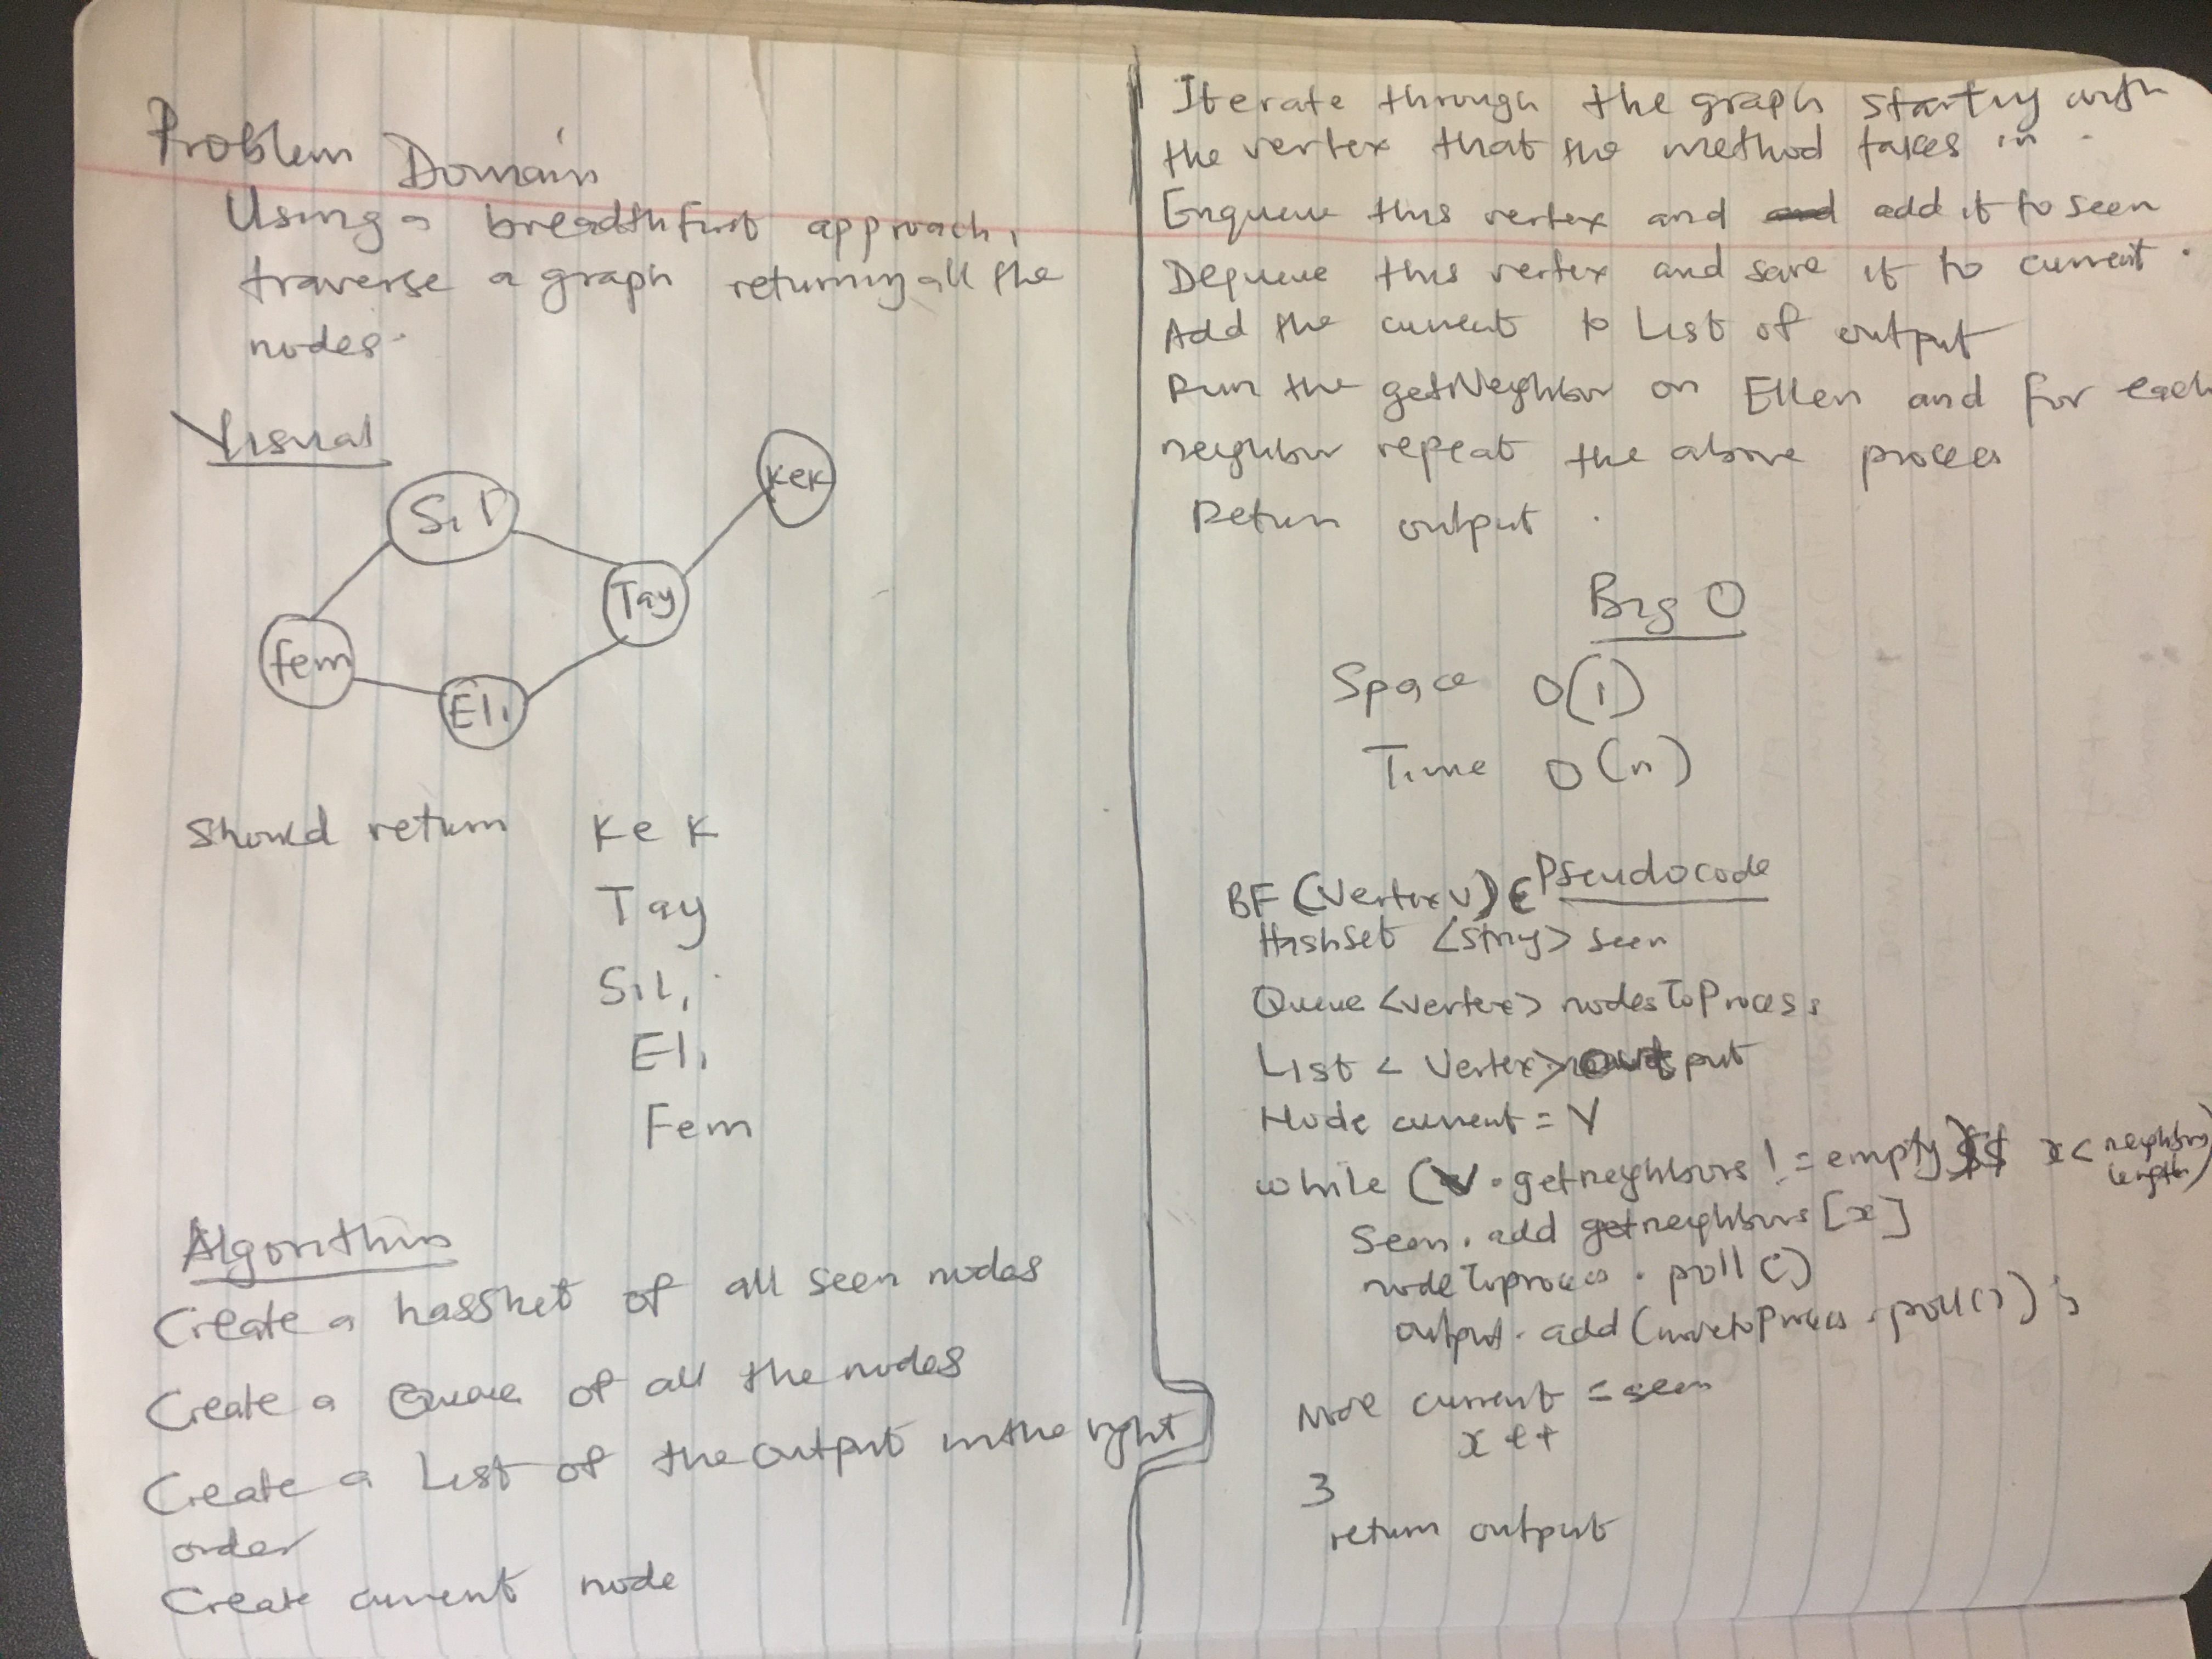 Problem Domain
Using a breadth first approach,
traverse a graph returning all the
nodes.
Visual
Fem
Sil
Eli
Tay
Kek
Should return Kek
Tay
Sil,
Eli,
Fem
Algorithm
Create a hasShet of all seen nodes
Create a Queue of all the nodes
Create a List of the output in the right
order
Create current node
Iterate through the graph starting with
the vertex that the method takes in.
Enqueue this vertex and add it to seen
Dequeue this vertex and save it to current.
Add the current to List of output
Run the getNeighbor on Ellen and for each
neighbor repeat the above process
Return output.
Big O
Space O(1)
Time O(n)
Pseudocode
BF(Vertex v) {
HashSet <String> seen
Queue <Vertex> nodesToProcess;
List < Vertex> output
Node current = V
while (v.getneighbors != empty && x < neighbors
length)
Seen.add getneighbours [x]
nodeToprocess.poll()
output.add(nodetoProcess.poll());
Node current = seen
x++
}
return output